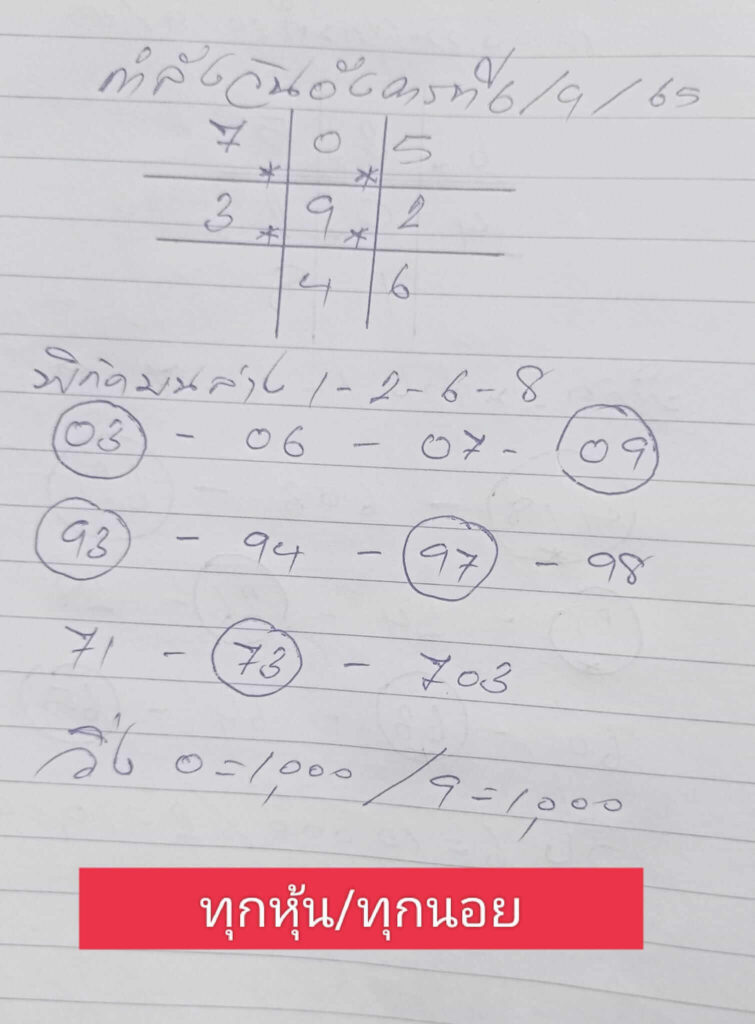 กำลังวันอังคารที่ 6/9/65
7 * 0 * 5
3 * 9 * 2
4 6
พิกัดบนล่าง 1-2-6-8
03 - 06 - 07 - 09
93 - 94 - 97 - 98
71 - 73 - 703
วิ่ง 0=1,000 / 9=1,000
ทุกหุ้น/ทุกนอย